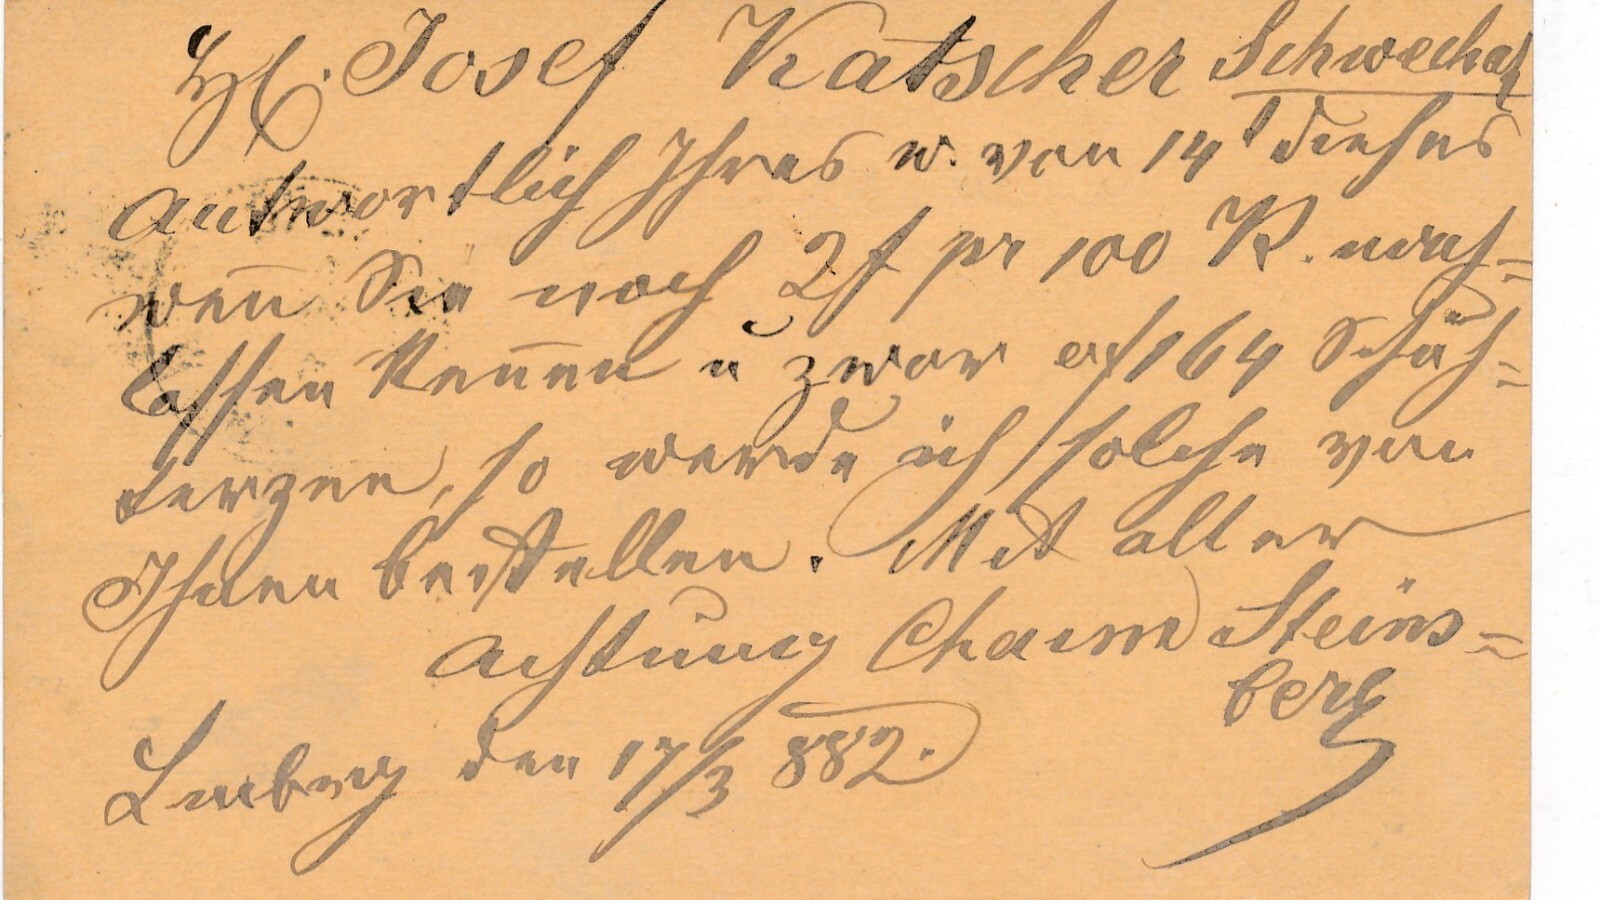 H. Josef Katscher Schwechat
Antwortlich Ihres w. von 14t dießes
weñ Sie noch 2f pr 100 K. nach=
lassen keñen u zwar auf 164
so werde ich solche von
Ihnen bestellen. Mit aller
Achtung Chaim Steins=
berg
Lemberg den 17/3 882.